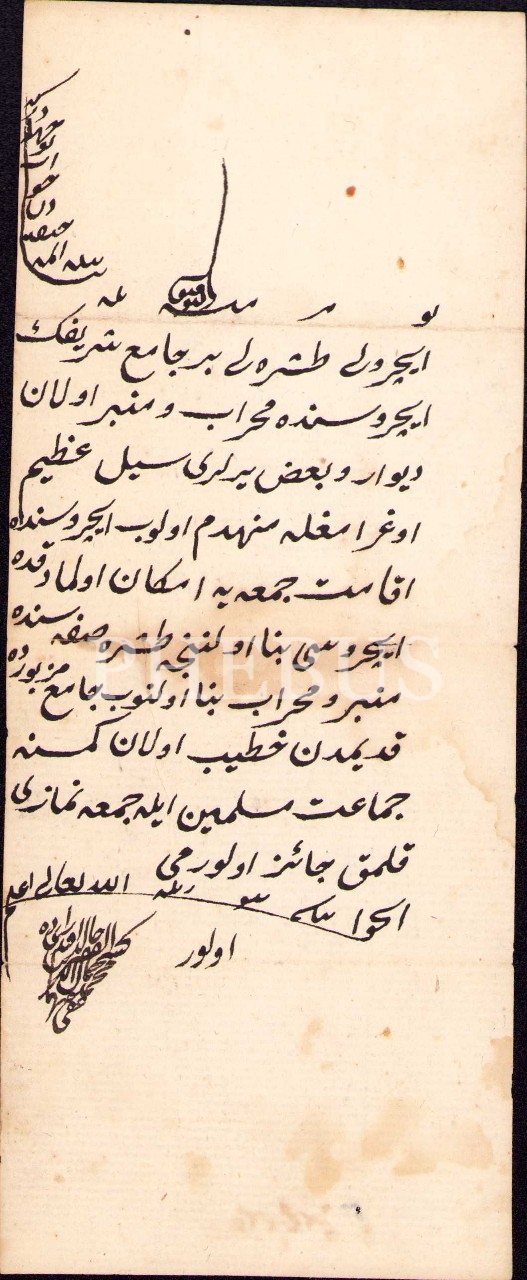 ايچرولى طشره لى بر جامع شريفك
ايچروسنده محراب و منبر اولان
ديوار و بعض يرلرى سيل عظيم
اوغرامغله منهدم اولوب ايچروسنده
اقامت جمعه يه امكان اولمادقده
ايچروسى بنا اولننجه طشره صفه سنده
منبر و محراب بنا اولنوب جامع مزبورده
قديمدن خطيب اولان كمسنه
جماعت مسلمين ايله جمعه نمازى
قلمق جائز اولورمى
الجواب الله تعالى اعلم
اولور
PHEBUS